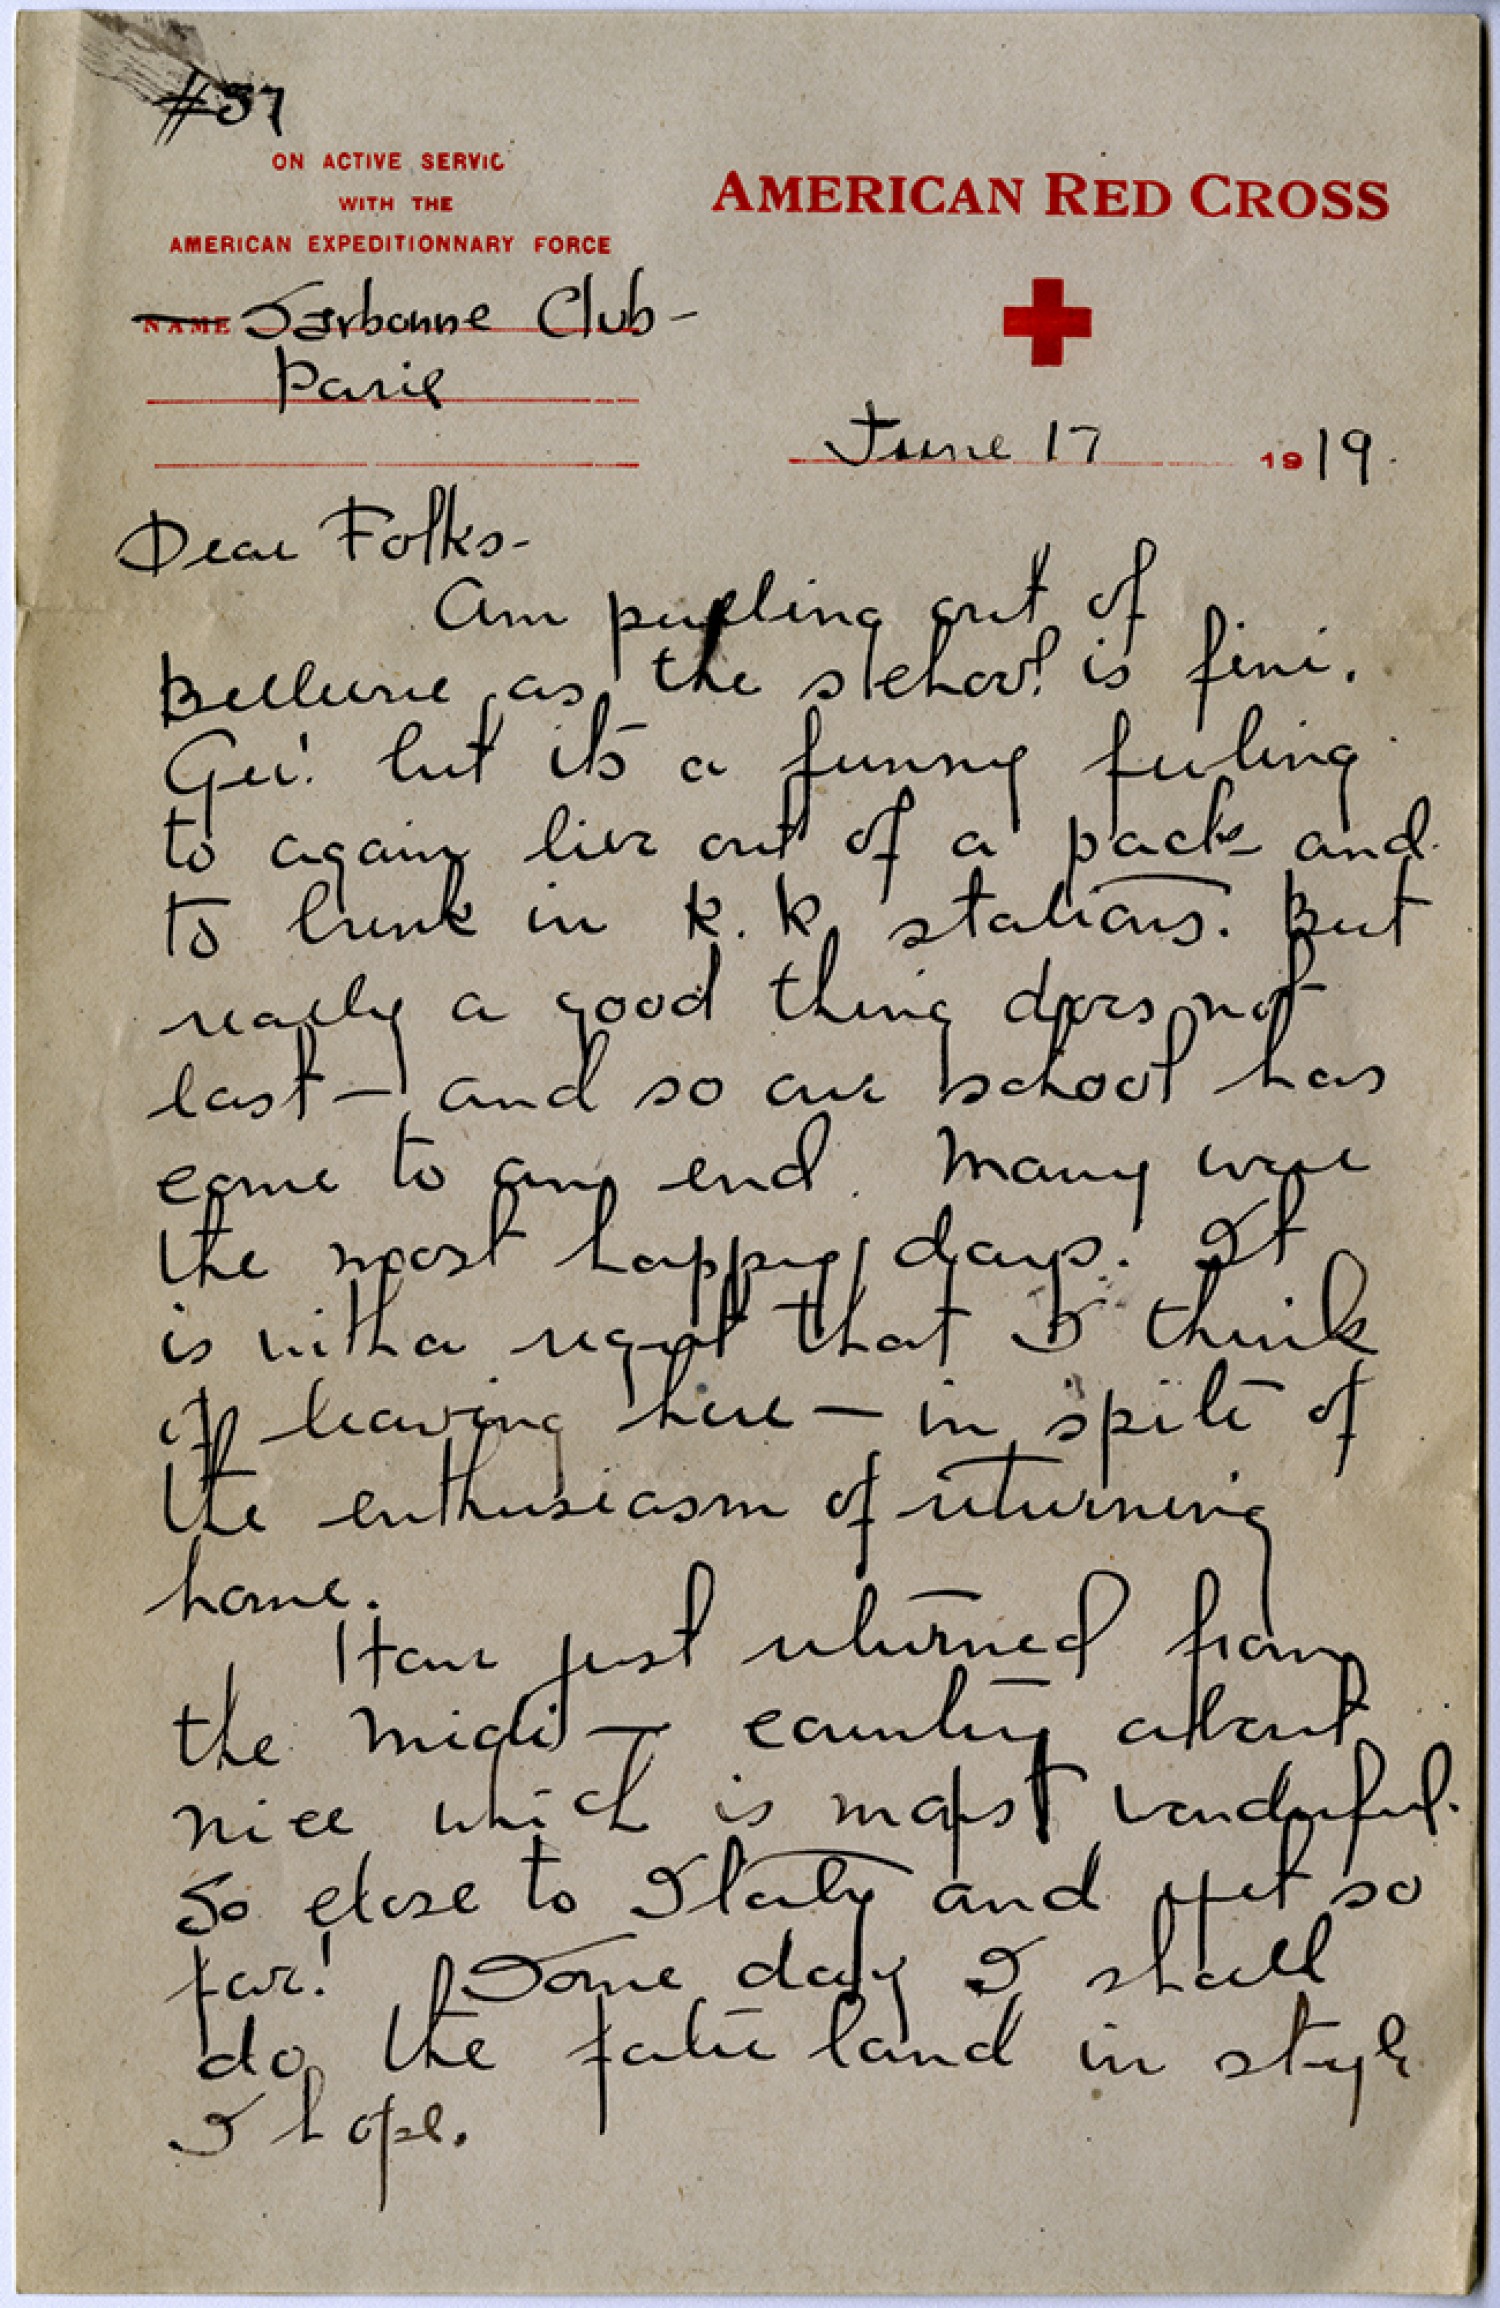 #57
ON ACTIVE SERVIC
WITH THE
AMERICAN EXPEDITIONNARY FORCE
AMERICAN RED CROSS
NAME Sorbonne Club -
Paris
June 17 1919.
Dear Folks -
Am pulling out of
Bellevue as the school is fini.
Gee! but its a funny feeling
to again live out of a pack and
to bunk in R. R. stations. But
really a good thing does not
last - and so our school has
come to an end. Many were
the most happy days. It
is with a regret that I think
of leaving here - in spite of
the enthusiasm of returning
home.
Have just returned from
the Midi - country about
Nice which is most wonderful.
So close to Italy and yet so
far! Some day I shall
do the fatherland in style
I hope.